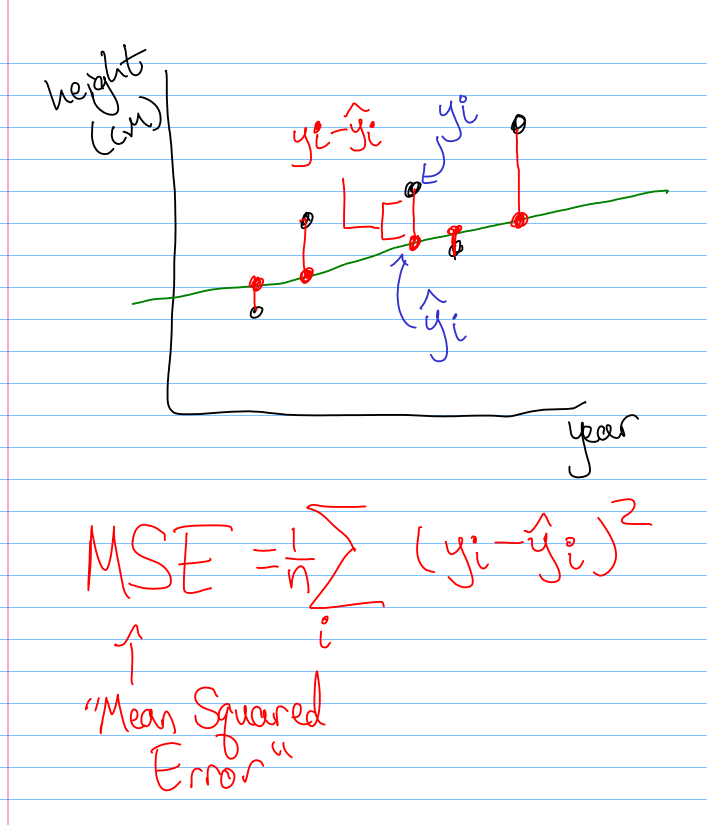 height
(cm)
yi-ŷi
yi
ŷi
year
MSE = 1/n ∑ (yi-ŷi)²
i
"Mean Squared
Error"